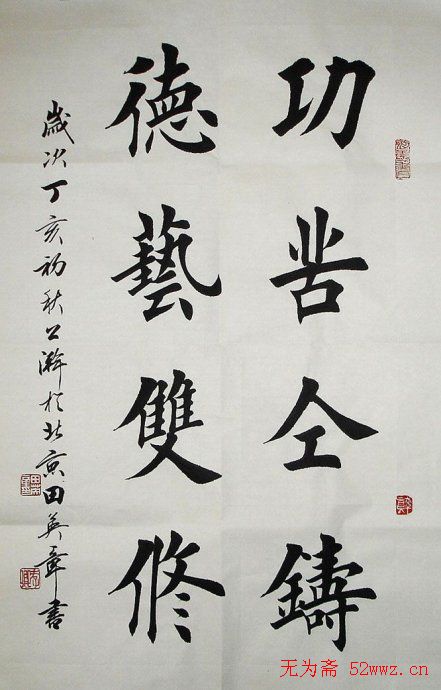 功苦仝鑄
德藝雙修
歲次丁亥初秋公瀚於北京田英章書
无为斋 52wwz.cn